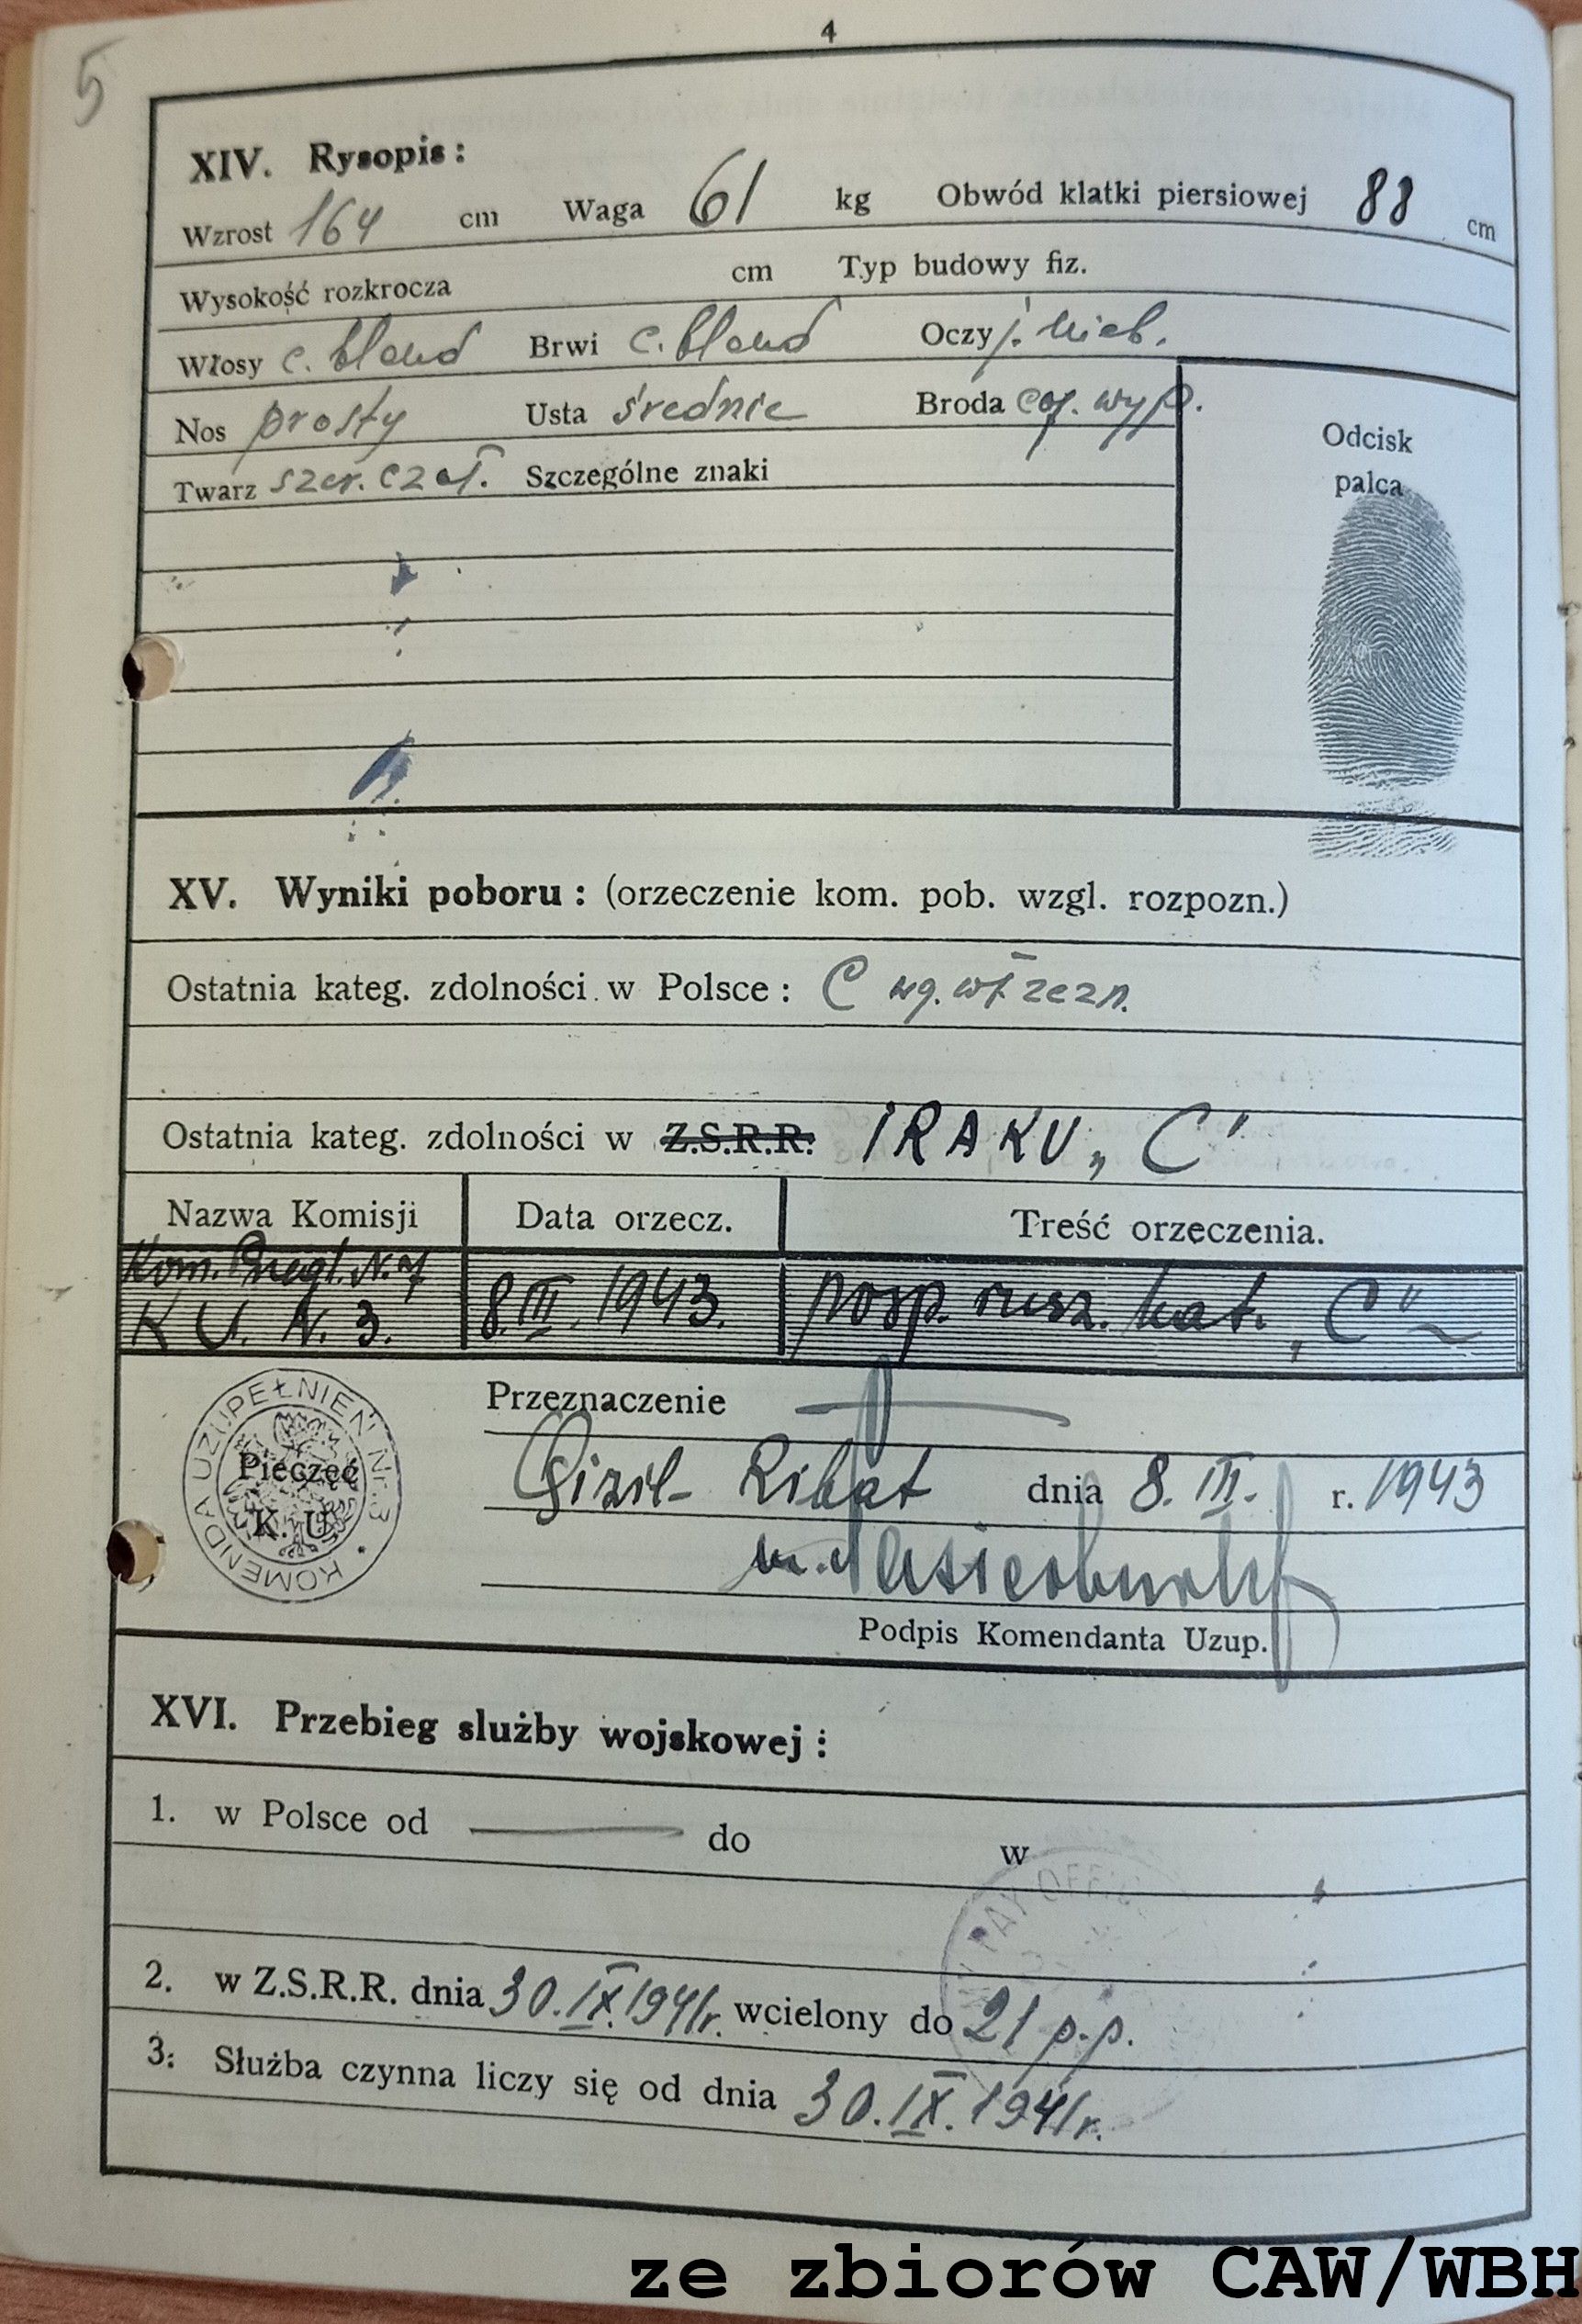 4
5
XIV. Rysopis:
Wzrost 164 cm Waga 61 kg Obwód klatki piersiowej 88 cm
Wysokość rozkrocza cm Typ budowy fiz.
Włosy c. blond Brwi c. blond Oczy j. nieb.
Nos prosty Usta średnie Broda wyp.
Twarz Szczególne znaki
Odcisk
palca
XV. Wyniki poboru: (orzeczenie kom. pob. wzgl. rozpozn.)
Ostatnia kateg. zdolności w Polsce: C wg. wł zezn.
Ostatnia kateg. zdolności w Z.S.R.R. IRAKU „C"
Nazwa Komisji Data orzecz. Treść orzeczenia.
Kom. Przegl. N. 7
K U. N. 3. 8.III.1943. posp. rusz. kat. „C"
KOMENDA UZUPEŁNIEŃ Nr. 3
Pieczęć
K. U.
Przeznaczenie
Gizil-Ribat dnia 8. III. r. 1943
Podpis Komendanta Uzup.
XVI. Przebieg służby wojskowej:
1. w Polsce od do w
PAY OFF
2. w Z.S.R.R. dnia 30.IX.1941r. wcielony do 21 p.p.
3. Służba czynna liczy się od dnia 30.IX.1941r.
ze zbiorów CAW/WBH